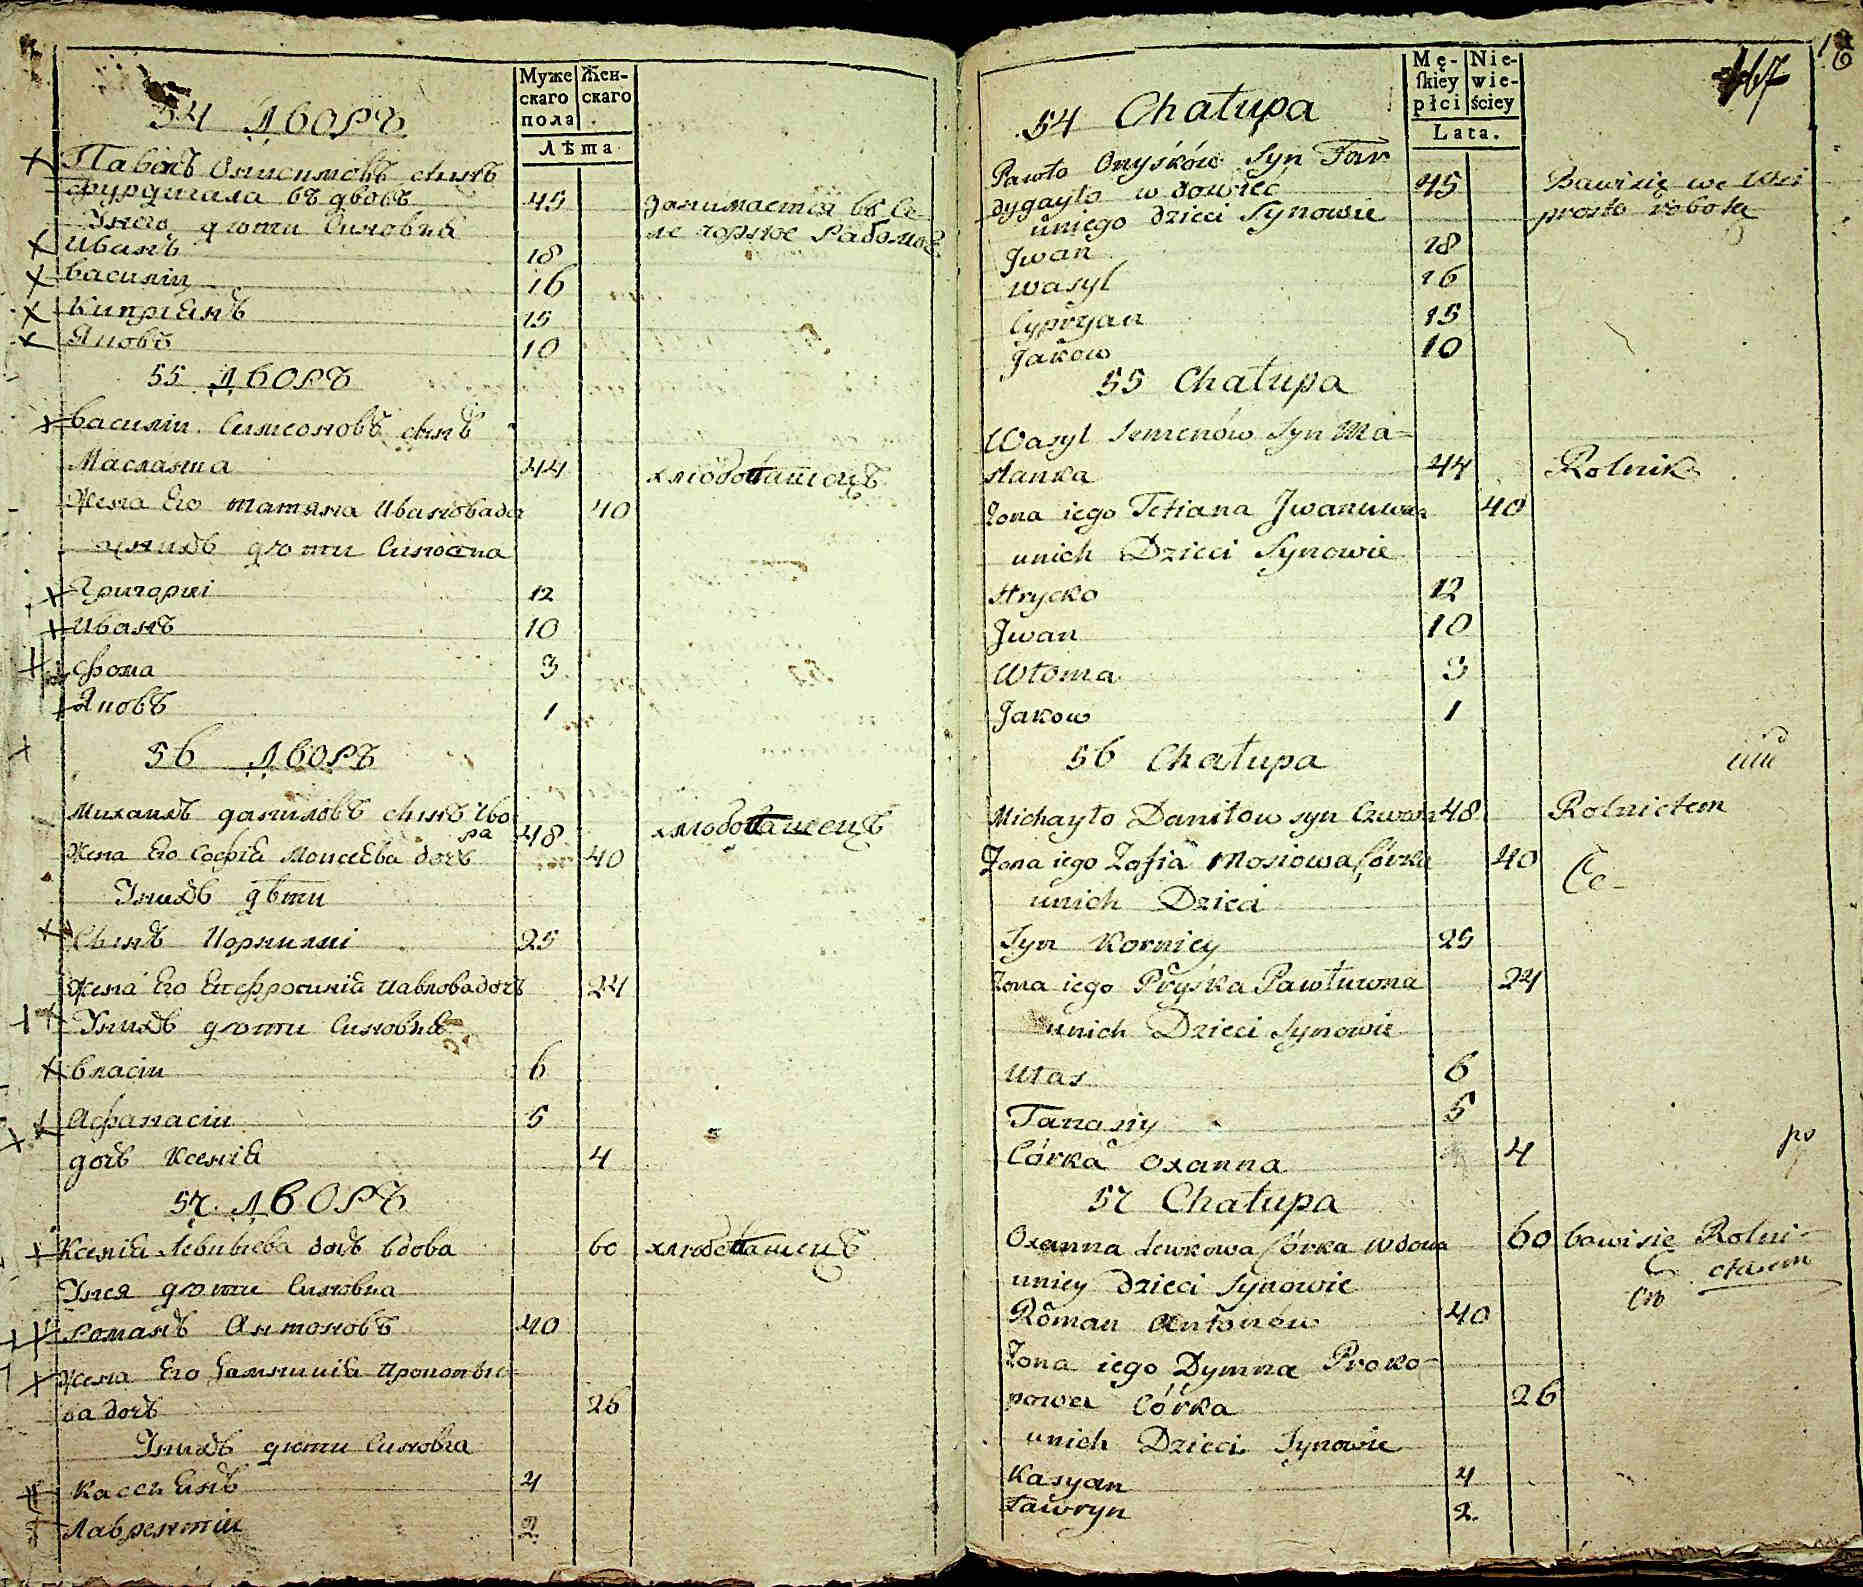 Муже
скаго
пола
Жен-
скаго
Лѣта
54 Дворъ
Павелъ Онисимовъ сынъ
Фурдигала въ дворѣ 45 занимается въ се-
У него дѣти Сыновья ле чорною работою
Иванъ 18
Василіи 16
Кипріянъ 15
Яковъ 10
55 Дворъ
Василіи Симеоновъ сынъ
Маслянка 44 хлѣбопашецъ
Жена Его Татяна Иванова доч 40
У нихъ дѣти Синовья
Григориі 12
Иванъ 10
Фома 3
Яковъ 1
56 Дворъ
Михаилъ Даниловъ сынъ
48 хлѣбопашецъ
Жена Его Софія Моисеева дочъ 40
У нихъ дѣти
Сынъ Корнилиі 25
Жена Его Ефросинія Павлова дочъ 24
У нихъ дѣти Синовья
Власіи 6
Афанасіи 5
дочъ Ксенія 4
57 Дворъ
Ксенія дочъ вдова 60 хлѣбопашецъ
У нея дѣти Синовья
Романъ Антоновъ 40
Жена Его Прокопіе-
ва дочъ 26
У нихъ дѣти Синовья
Кассиянъ 4
Лаврентіи 2
Mę-
ſkiey
płci
Nie-
wie-
ściey
Lata.
167
16
54 Chałupa
Pawło Onyśków Syn Fur
dygayło w dowiec 45 Bawi się we Wsi
u niego dzieci Synowie prosto robotą
Jwan 18
Wasyl 16
Cypryan 15
Jakow 10
55 Chałupa
Wasyl Semenów Syn Ma-
słanka 44 Rolnik
Zona iego Tetiana Jwanuwna 40
unich Dzieci Synowie
Hrycko 12
Jwan 10
Wtoma 3
Jakow 1
56 Chałupa
Michayło Daniłow syn 48 Rolnictem
Zona iego Zofia Mosiowa Córka 40
unich Dzieci
Syn Korniey 25
Zona iego Pryśka Pawłuwna 24
unich Dzieci Synowie
Ułas 6
Tanasiy 5
Córka Oxanna 4
57 Chałupa
Oxanna Lewkowa Córka Wdowa 60 bawi się Rolni-
uniey dzieci Synowie ctwem
Roman Antonów 40
Zona iego Dymna Proko-
powa Córka 26
unich Dzieci Synowie
Kasyan 4
Ławryn 2